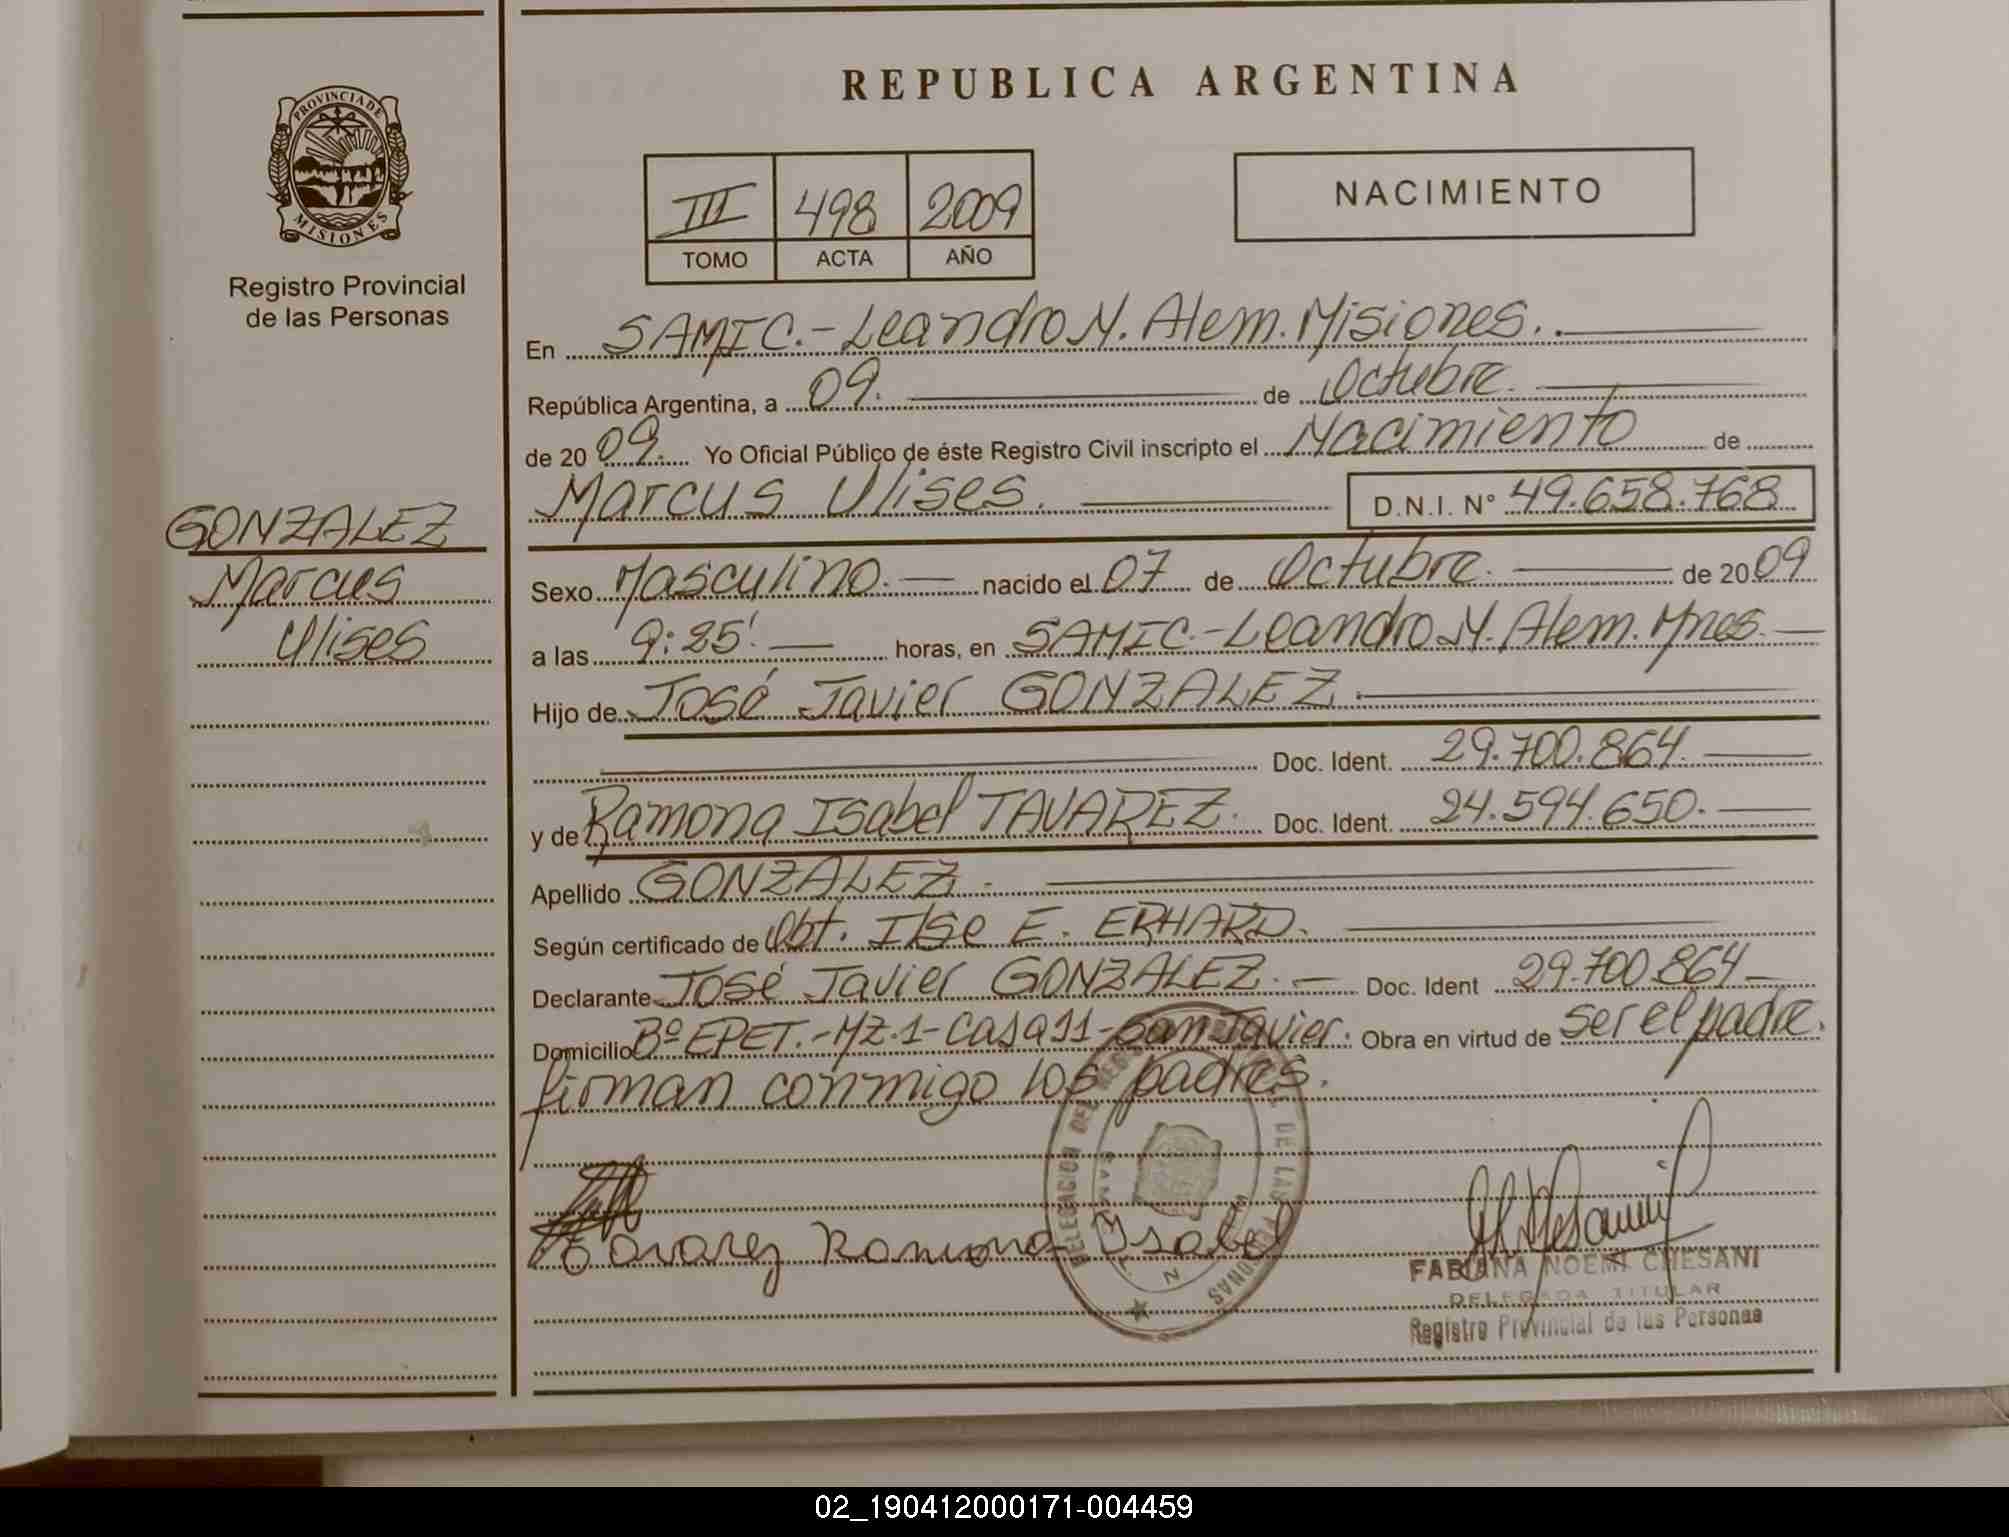 REPUBLICA ARGENTINA
PROVINCIA DE MISIONES
Registro Provincial
de las Personas
III 498 2009
TOMO ACTA AÑO
NACIMIENTO
En SAMIC.-Leandro N. Alem. Misiones.
República Argentina, a 09. de Octubre.
de 2009. Yo Oficial Público de éste Registro Civil inscripto el Nacimiento de
Marcus Ulises. D.N.I. N° 49.658.768
GONZALEZ
Marcus
Ulises
Sexo Masculino. nacido el 07 de Octubre. de 2009
a las 9:25'. horas, en SAMIC.-Leandro N. Alem. Mnes.
Hijo de José Javier GONZALEZ.
Doc. Ident. 29.700.864.
y de Ramona Isabel TAVAREZ. Doc. Ident. 24.594.650.
Apellido GONZALEZ.
Según certificado de Obt. Ilse E. ERHARD.
Declarante José Javier GONZALEZ. Doc. Ident 29.700.864
Domicilio Bº EPET.-MZ.1-Casa 11-San Javier. Obra en virtud de ser el padre.
firman conmigo los padres.
Tavarez Ramona Ysabel
DELEGACION DEL REGISTRO DE LAS PERSONAS
FABIANA NOEMI CHESANI
DELEGADA TITULAR
Registro Provincial de las Personas
02_190412000171-004459